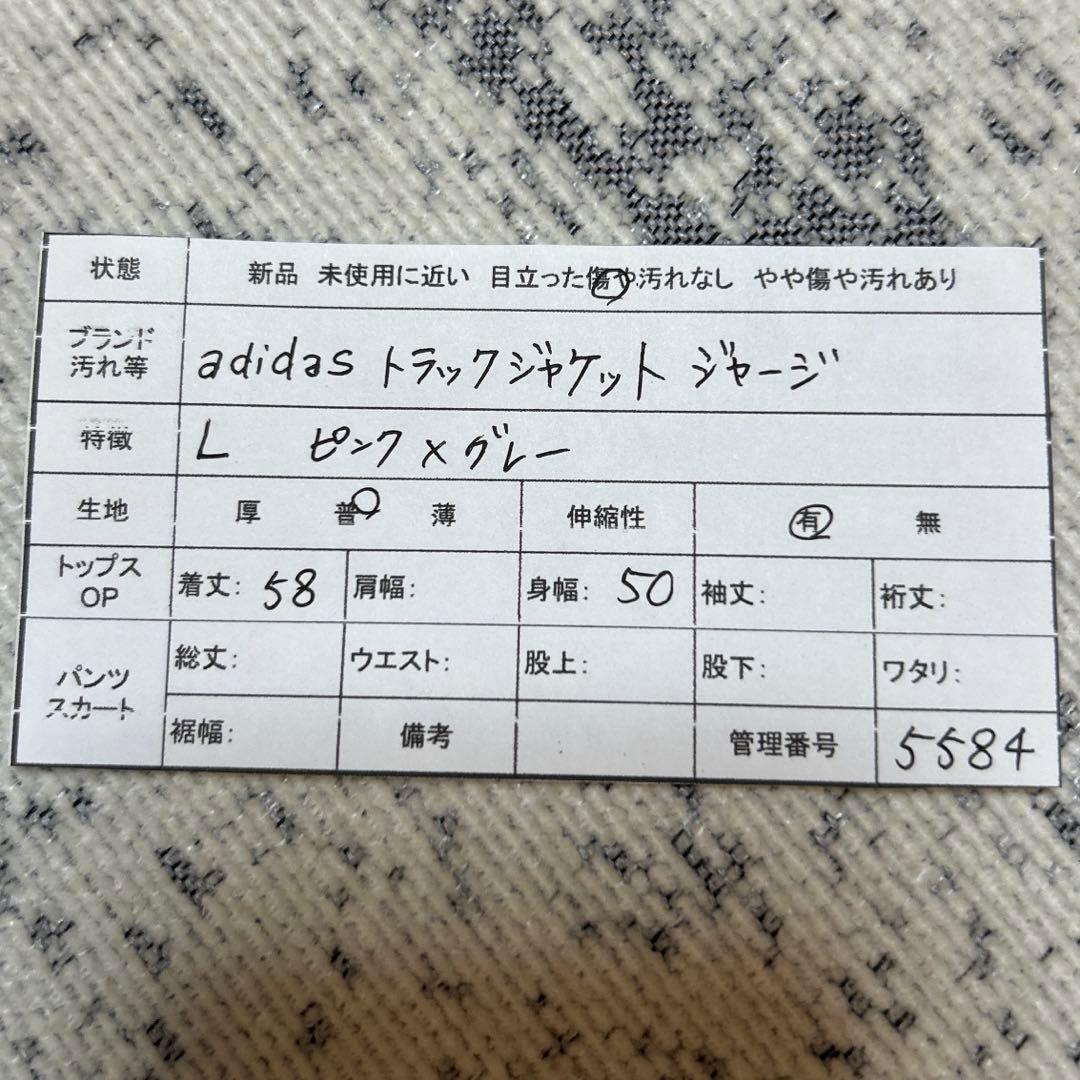 状態 新品 未使用に近い 目立った傷や汚れなし やや傷や汚れあり
ブランド
汚れ等 adidas トラックジャケット ジャージ
特徴 L ピンク×グレー
生地 厚 普 薄 伸縮性 有 無
トップス
OP 着丈: 58 肩幅: 身幅: 50 袖丈: 裄丈:
パンツ
スカート 総丈: ウエスト: 股上: 股下: ワタリ:
裾幅: 備考 管理番号 5584